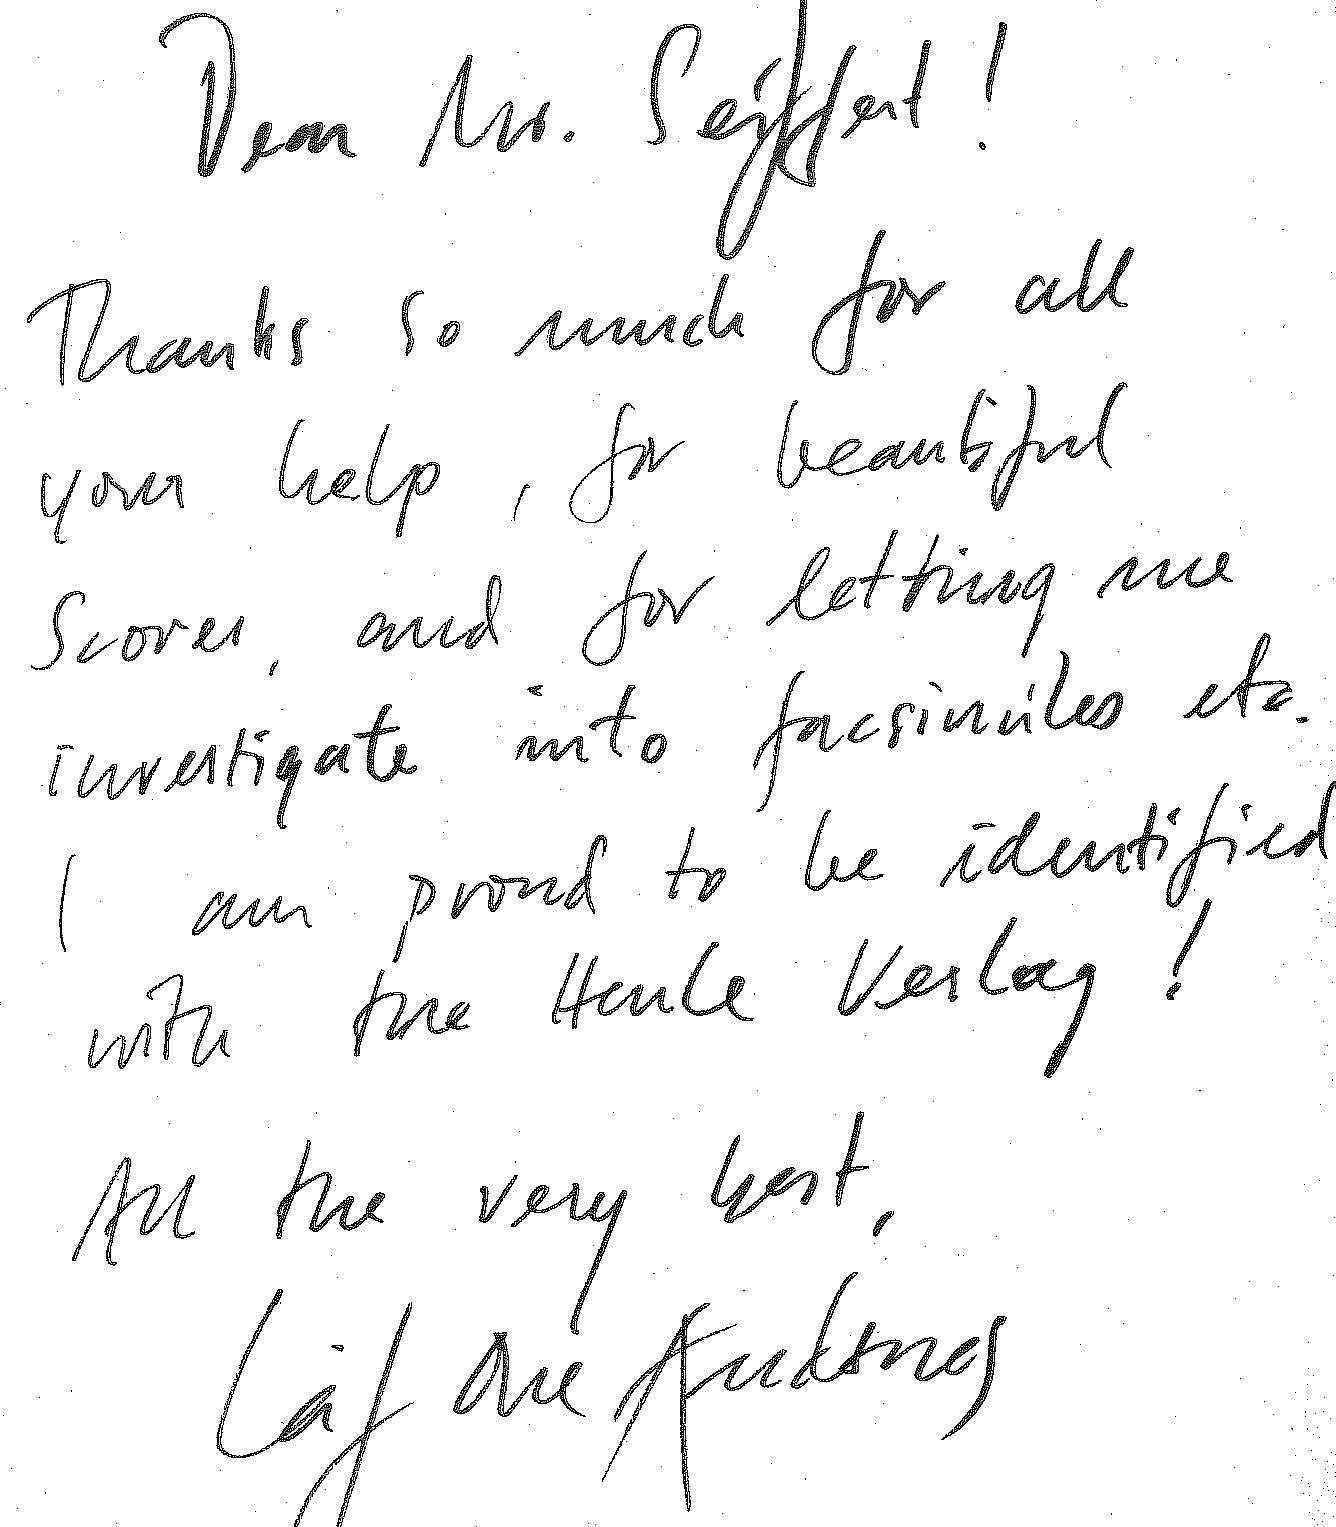 Dear Mr. Seiffert!
Thanks so much for all
your help, for beautiful
scores, and for letting me
investigate into facsimiles etc.
I am proud to be identified
with the Henle Verlag!
All the very best,
Leif Ove Andsnes